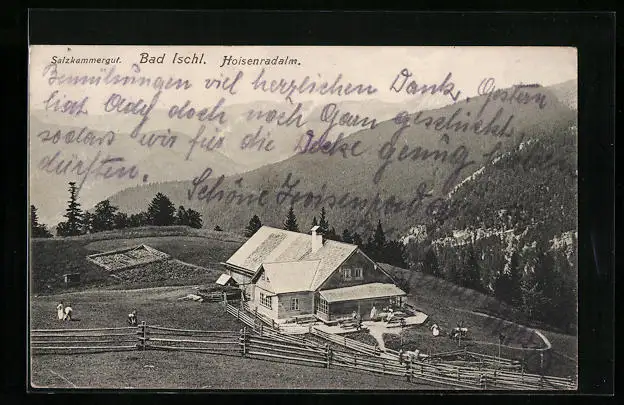 Salzkammergut. Bad Ischl. Hoisenradalm.
Bemühungen viel herzlichen Dank, Gestern
hat doch noch Garn geschickt
sodass wir für die Decke genug
dürften.
Schöne Hoisenradalm